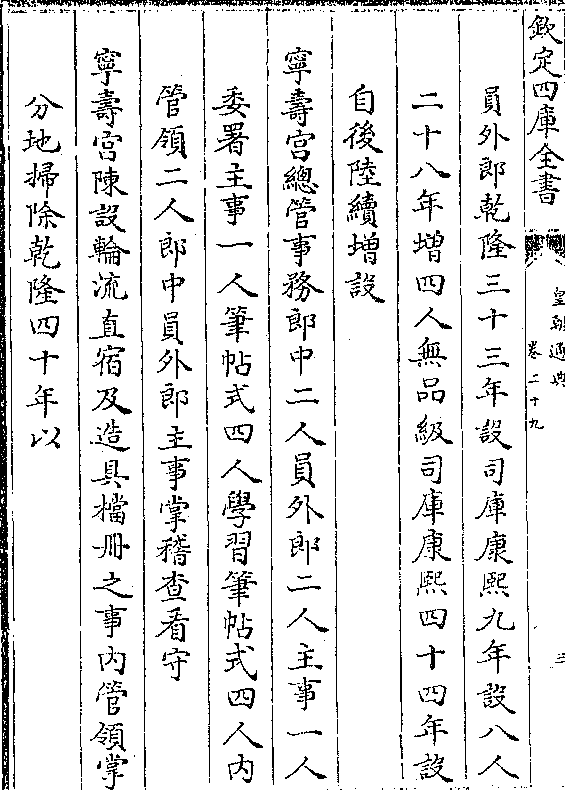 欽定四庫全書
皇朝通典
卷二十九
三
員外郎乾隆三十三年設司庫康熙九年設八人
二十八年増四人無品級司庫康熙四十四年設
自後陸續増設
寧壽宮總管事務郎中二人員外郎二人主事一人
委署主事一人筆帖式四人學習筆帖式四人内
管領二人郎中員外郎主事掌稽查看守
寧壽宮陳設輪流直宿及造具檔冊之事内管領掌
分地掃除乾隆四十年以